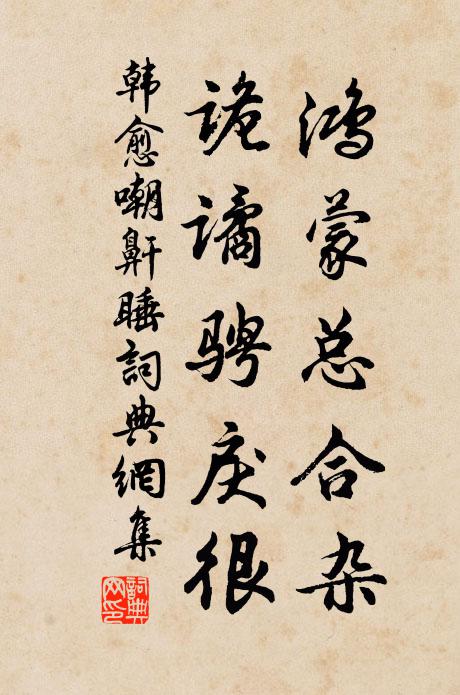 鸿蒙总合杂
诡谲骋戾很
韩愈嘲鼾睡詞典網集
詞典网印